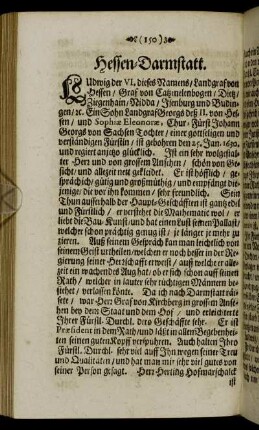 (150)
Hessen/Darmstatt.
Ludwig der VI. dieses Namens/Landgraf von
Hessen/ Graf von Catzenelenbogen/ Dietz/
Ziegenhain/ Nidda/ Isenburg und Büdin-
gen/ ꝛc. Ein Sohn Landgraf Georgs deß II. von Hes-
sen/ und Sophiæ Eleonoræ, Chur-Fürst Johann
Georgs von Sachsen Tochter/ einer gottseligen und
verständigen Fürstin/ ist gebohren den 25. Jan. 1630.
und regiert anjetzo glücklich. Ist ein sehr wolgestal-
ter Herr und von grossem Ansehen/ schön von Ge-
sicht/ und allezeit nett gekleidet. Er ist höfflich/ ge-
sprächich/ gütig und großmüthig/ und empfängt die-
jenige/ die vor ihn kommen/ sehr freundlich. Sein
Thun ausserhalb der Haupt-Geschäfften ist gantz edel
und Fürstlich/ er verstehet die Mathematic wol/ er
liebt die Bau-Kunst/ und hat einen Lust seinen Pallast
welcher schon prächtig genug ist/ je länger je mehr zu
zieren. Auß seinem Gespräch kan man leichtlich von
seinem Geist urtheilen/ welchen er noch besser in der Re-
gierung seiner Herrschafft erweist/ auf welche er alle-
zeit ein wachendes Aug hat/ ob er sich schon auf seinen
Rath/ welcher in lauter sehr tüchtigen Männern be-
stehet/ verlassen könte. Da ich nach Darmstatt räi-
sete/ war Herr Graf von Kirchberg in grossem Anse-
hen bey dem Staat und dem Hof/ und erleichterte
Ihrer Fürstl. Durchl. dero Geschäffte sehr. Er ist
Præsident in dem Rath/ und läßt in allen Begebenhei-
ten seinen guten Kopff verspühren. Auch halten Ihro
Fürstl. Durchl. sehr viel auf Ihn wegen seiner Treu
und Qualitäten/ und hat man mir sehr viel gutes von
seiner Person gesagt. Herr Hertlig Hofmarschalck
ist